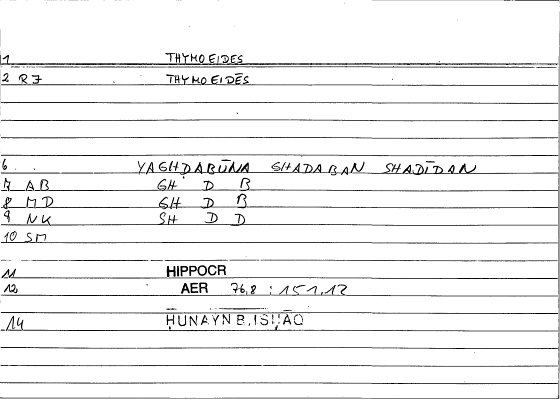 1 THYMOEIDES
2 RJ THYMOEIDĒS
6 YAGHDABŪNA GHADABAN SHADĪDAN
7 AB GH D B
8 MD GH D B
9 NK SH D D
10 SM
11 HIPPOCR
12 AER 76,8 : 151,12
14 ḤUNAYN B. ISḤĀQ